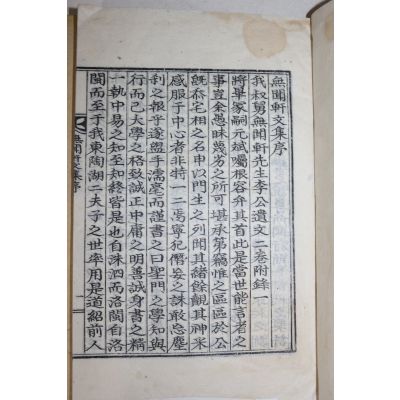 無聞軒文集序
我叔舅無聞軒先生李公遺文二卷附錄一
將畢家嗣元斌囑根容弁其首此是當世能言者之
事豈余愚昧幾劣之所可堪承第竊惟之區區於公
旣忝宅相之名申以門生之列聞其緖餘覿其神米
感服于中心者非特一二焉寧犯僭妄之誅敢忘塵
刹之報乎遂盥手濡毫而謹書之曰聖門之學知與
行而已大學之格致誠正中庸之明善誠身書之精
一執中易之知至知終皆是也自洙泗而洛閩自洛
閩而至于我東陶湖二夫子之世率用是道紹前人
無聞軒文集序
一